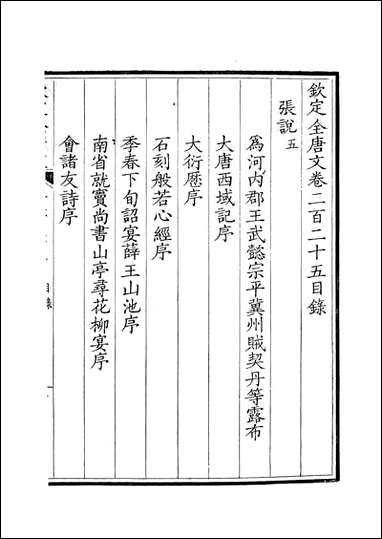 欽定全唐文卷二百二十五目錄
張說五
為河內郡王武懿宗平冀州賊契丹等露布
大唐西域記序
大衍厯序
石刻般若心經序
季春下旬詔宴薛王山池序
南省就竇尚書山亭尋花柳宴序
會諸友詩序
目錄
一